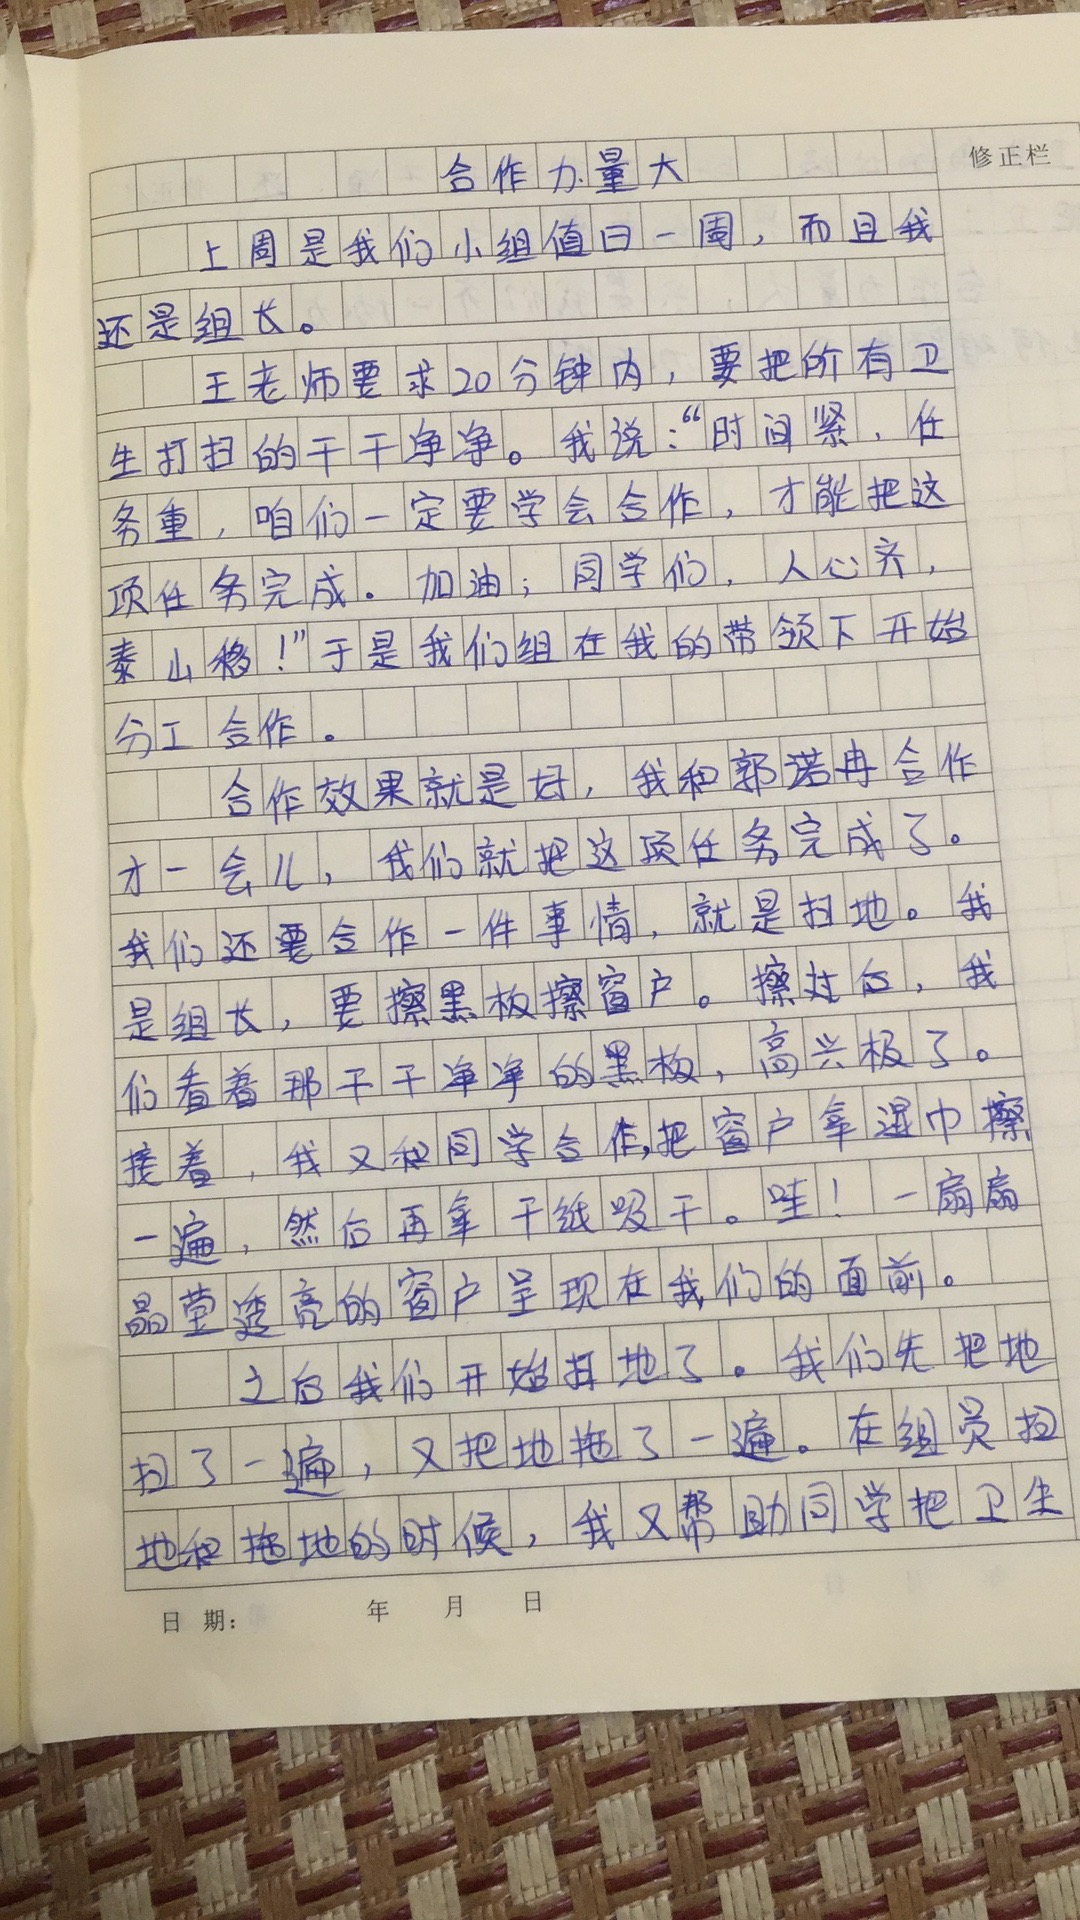 合作力量大
修正栏
上周是我们小组值日一周，而且我
还是组长。
王老师要求20分钟内，要把所有卫
生打扫的干干净净。我说：“时间紧，任
务重，咱们一定要学会合作，才能把这
项任务完成。加油；同学们，人心齐，
泰山移！”于是我们组在我的带领下开始
分工合作。
合作效果就是好，我和郭诺冉合作
才一会儿，我们就把这项任务完成了。
我们还要合作一件事情，就是扫地。我
是组长，要擦黑板擦窗户。擦过后，我
们看着那干干净净的黑板，高兴极了。
接着，我又和同学合作,把窗户拿湿巾擦
一遍，然后再拿干纸吸干。哇！一扇扇
晶莹透亮的窗户呈现在我们的面前。
之后我们开始扫地了。我们先把地
扫了一遍，又把地拖了一遍。在组员扫
地和拖地的时候，我又帮助同学把卫生
日期： 年 月 日